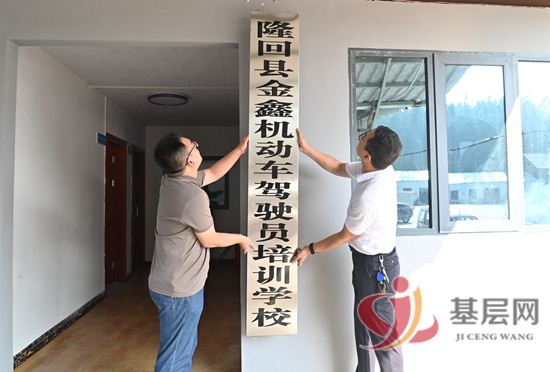 隆回县金鑫机动车驾驶员培训学校
基层网
JI CENG WANG